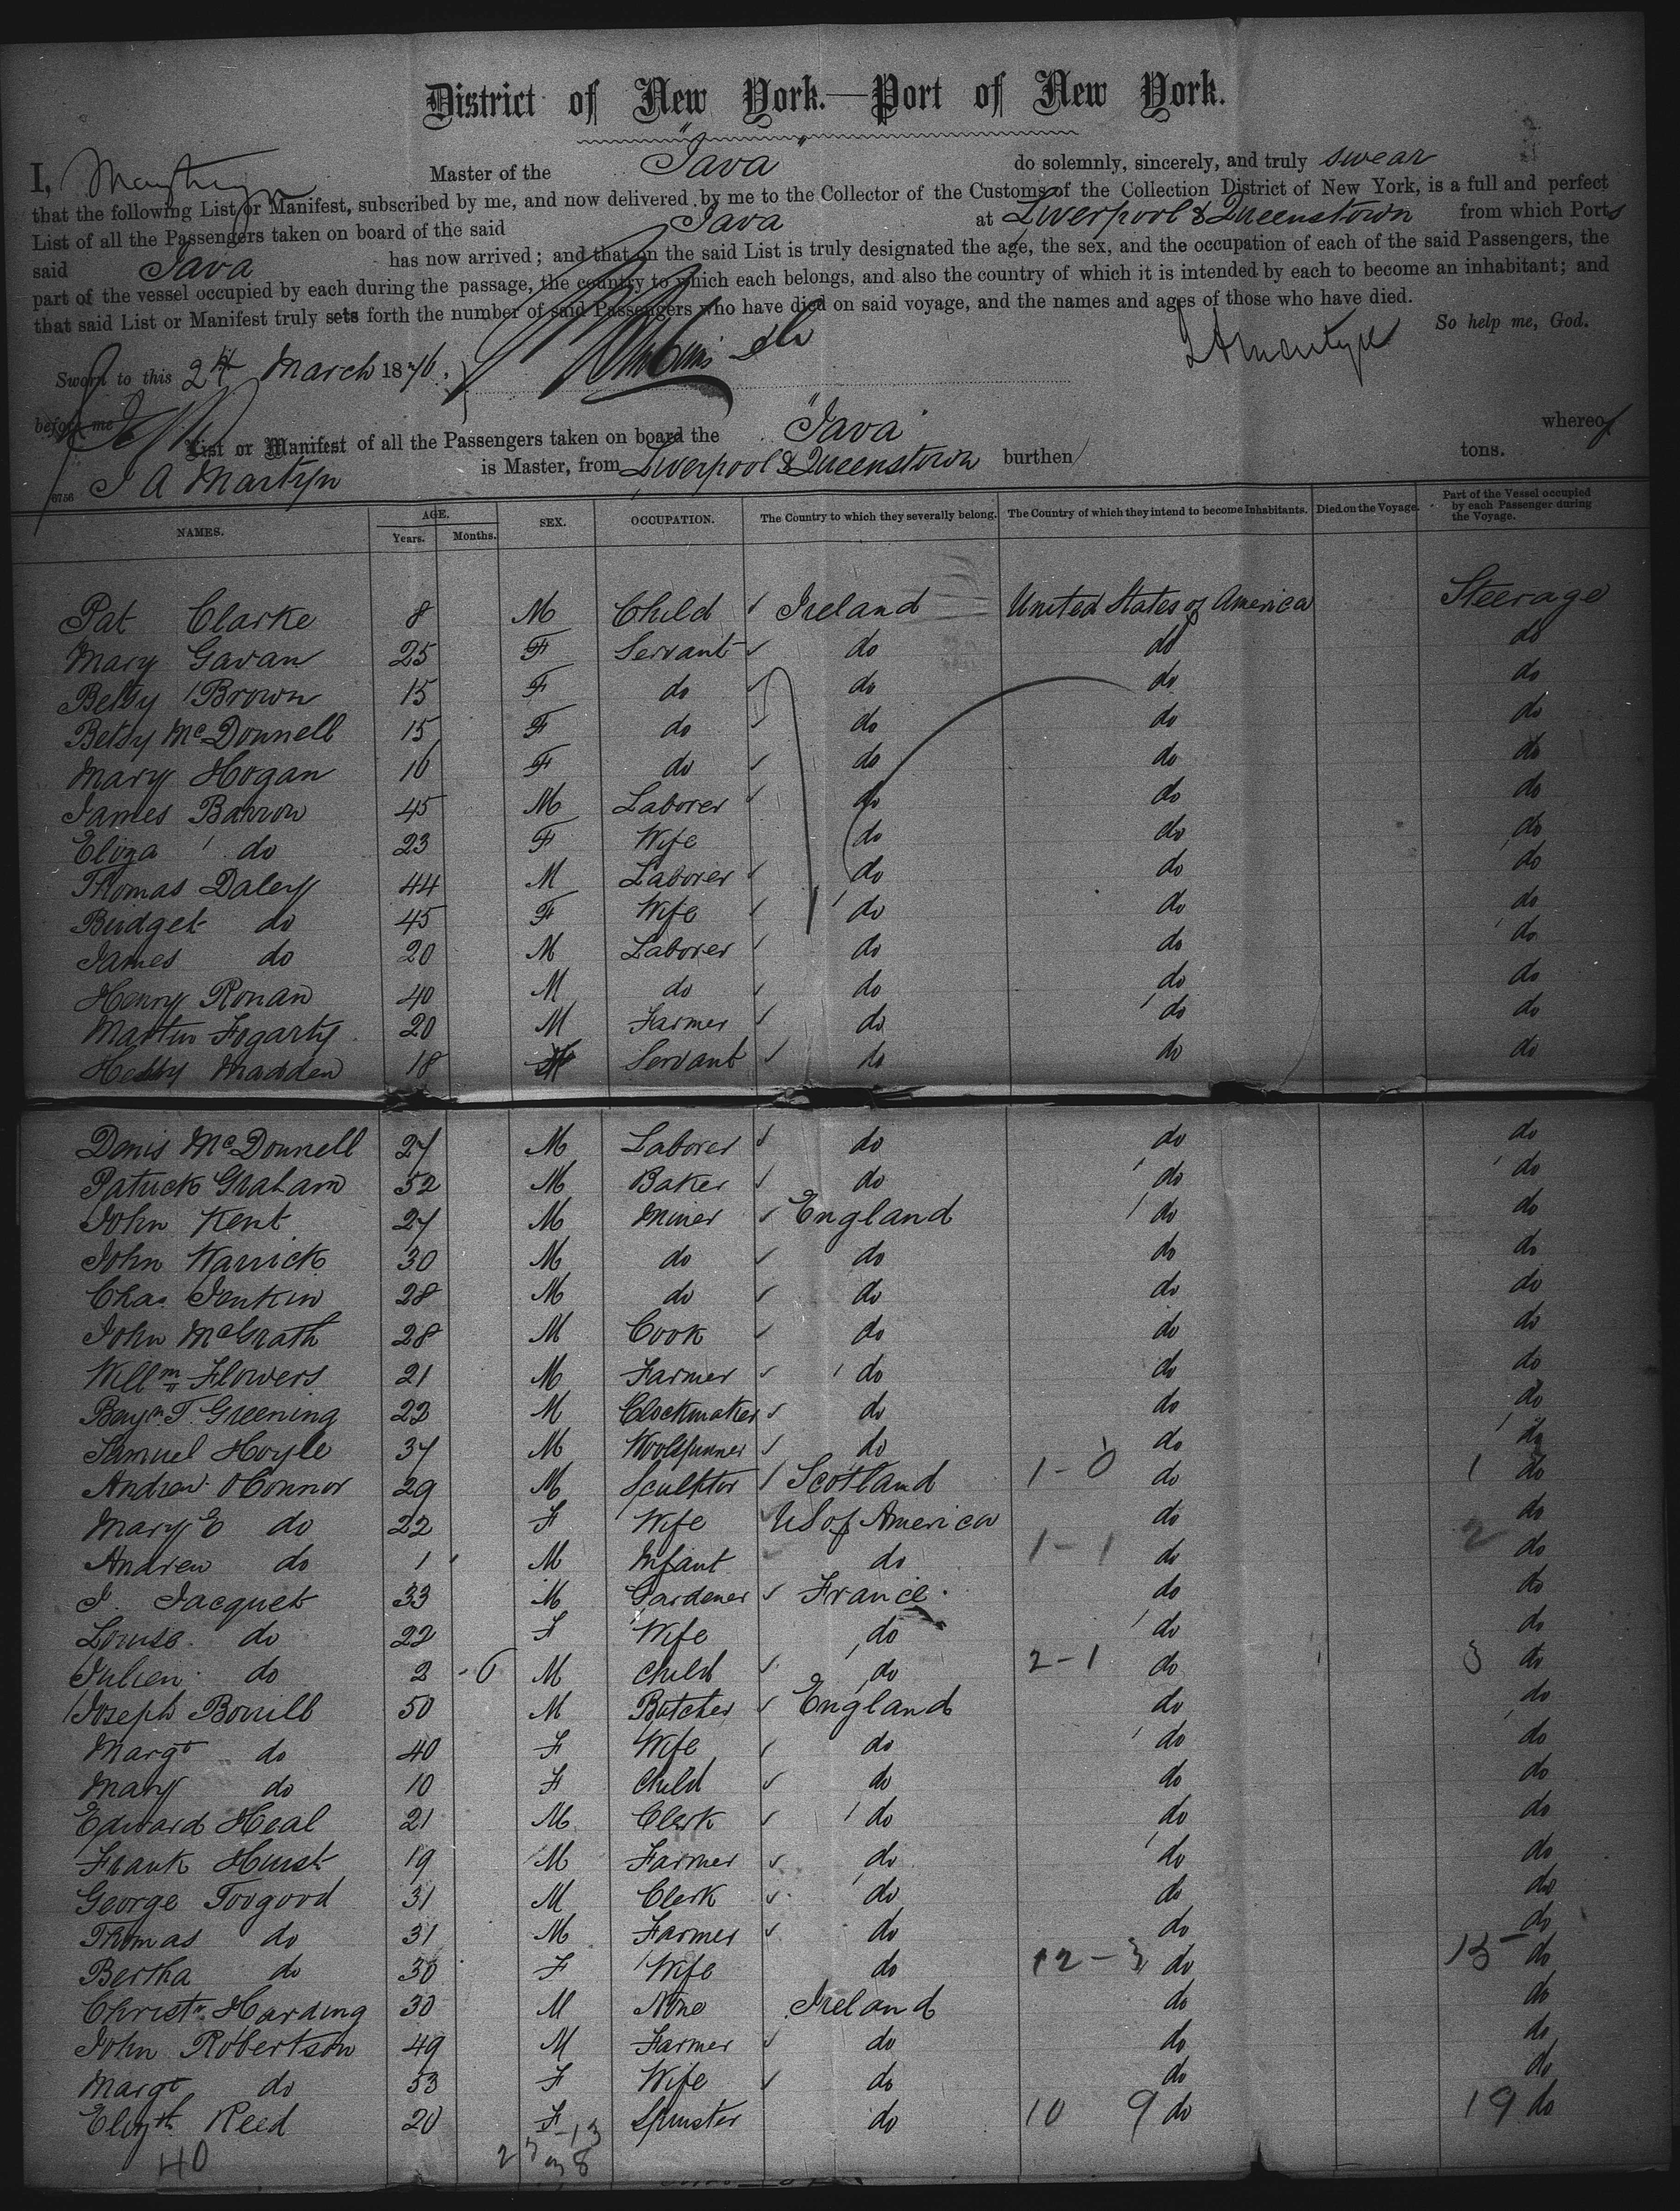 District of New York.—Port of New York.
I, Master of the "Java" do solemnly, sincerely, and truly swear
that the following List or Manifest, subscribed by me, and now delivered by me to the Collector of the Customs of the Collection District of New York, is a full and perfect
List of all the Passengers taken on board of the said Java at Liverpool & Queenstown from which Ports
said Java has now arrived; and that on the said List is truly designated the age, the sex, and the occupation of each of the said Passengers, the
part of the vessel occupied by each during the passage, the country to which each belongs, and also the country of which it is intended by each to become an inhabitant; and
that said List or Manifest truly sets forth the number of said Passengers who have died on said voyage, and the names and ages of those who have died.
So help me, God.
Sworn to this 24 March 1876.
before me
List or Manifest of all the Passengers taken on board the "Java" whereof
J A Martyn is Master, from Liverpool & Queenstown burthen tons.
6756
NAMES. AGE. Years. Months. SEX. OCCUPATION. The Country to which they severally belong. The Country of which they intend to become Inhabitants. Died on the Voyage. Part of the Vessel occupied by each Passenger during the Voyage.
Pat Clarke 8 M Child Ireland United States of America Steerage
Mary Gavan 25 F Servant do do do
Betsy Brown 15 F do do do do
Betsy McDonnell 15 F do do do do
Mary Hogan 16 F do do do do
James Barron 45 M Laborer do do do
Eliza do 23 F Wife do do do
Thomas Daley 44 M Laborer do do do
Bridget do 45 F Wife do do do
James do 20 M Laborer do do do
Henry Ronan 40 M do do do do
Martin Fogarty 20 M Farmer do do do
Madden 18 Servant do do do
Denis McDonnell 27 M Laborer do do do
Patrick Graham 52 M Baker do do do
John Kent 27 M Miner England do do
John Warrick 30 M do do do do
Chas Jenkin 28 M do do do do
John McGrath 28 M Cook do do do
Willm Flowers 21 M Farmer do do do
Benjn T. Greening 22 M Clockmaker do do do
Samuel Hoyle 37 M Woolspinner do do do
Andrew O'Connor 29 M Sculptor Scotland 1-0 do 1 do
Mary E do 22 F Wife US of America do do
Andrew do 1 M Infant do 1-1 do 2 do
J. Jacquet 33 M Gardener France do do
Louise do 22 F Wife do do do
Julien do 2 -6 M Child do 2-1 do 3 do
Joseph Bonill 50 M Butcher England do do
Margt do 40 F Wife do do do
Mary do 10 F Child do do do
Edward Heal 21 M Clerk do do do
Frank Hurst 19 M Farmer do do do
George Toogood 31 M Clerk do do do
Thomas do 31 M Farmer do do do
Bertha do 30 F Wife do 12-3 do 15 do
Christr Harding 30 M None Ireland do do
John Robertson 49 M Farmer do do do
Margt do 53 F Wife do do do
Elizth Reed 20 F Spinster do 10 9 do 19 do
40